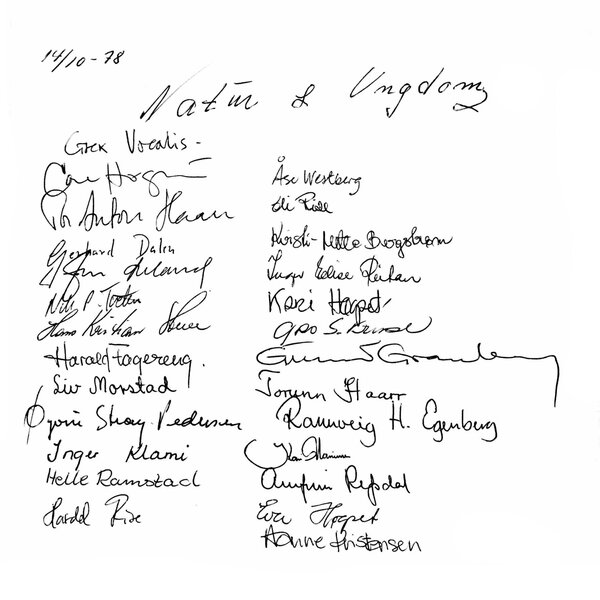 14/10-78
Natur & Ungdom
Grex Vocalis -
Tor Anton Haan
Gerhard Dalen
Nils P.
Hans Kristian
Harald Fagereng.
Liv Morstad
Øyvin Skray Pedersen
Inger Klami
Helle Ramstad
Harald Rise
Åse Westberg
Eli Rise
Kirsti-Mette Bergstrøm
Inger Elise Reitan
Kari Hogset
Gro S.
Gunnar Granberg
Torunn Haarr
Rannveig H. Egenberg
Arnfinn Refsdal
Eva Hogset
Hanne Kristensen